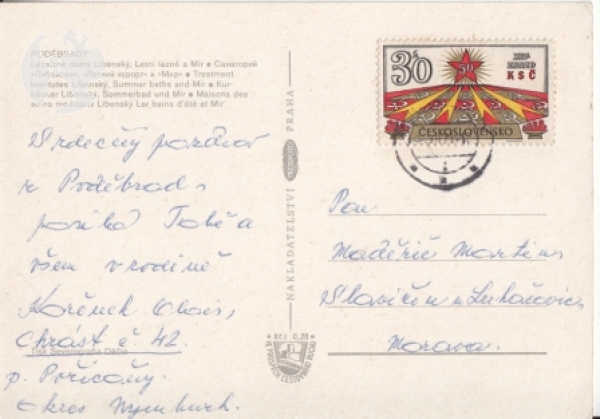 PODĚBRADY
Léčebné domy Libenský, Letní lázně a Mír • Санаторий
«Либенски», «Летний курорт» и «Мир» • Treatment
Institutes Libenský, Summer baths and Mír • Kur-
häuser Libenský, Sommerbad und Mír • Maisons des
soins médicaux Libenský Les bains d'été et Mír
Srdečný pozdrav
z Poděbrad
posílá Tobě a
všem v rodině
Kořének Alois,
Chrást č. 42.
Tisk Severografia Děčín
p. Poříčany.
okres Nymburk.
NAKLADATELSTVÍ PRAHA
Kčs 0,20
VE PROSPĚCH CESTOVNÍHO RUCHU
30
50
SJEZD
KSČ
ČESKOSLOVENSKO
Pan
Maděřič Martin
Slavičín u Luhačovic
Morava.